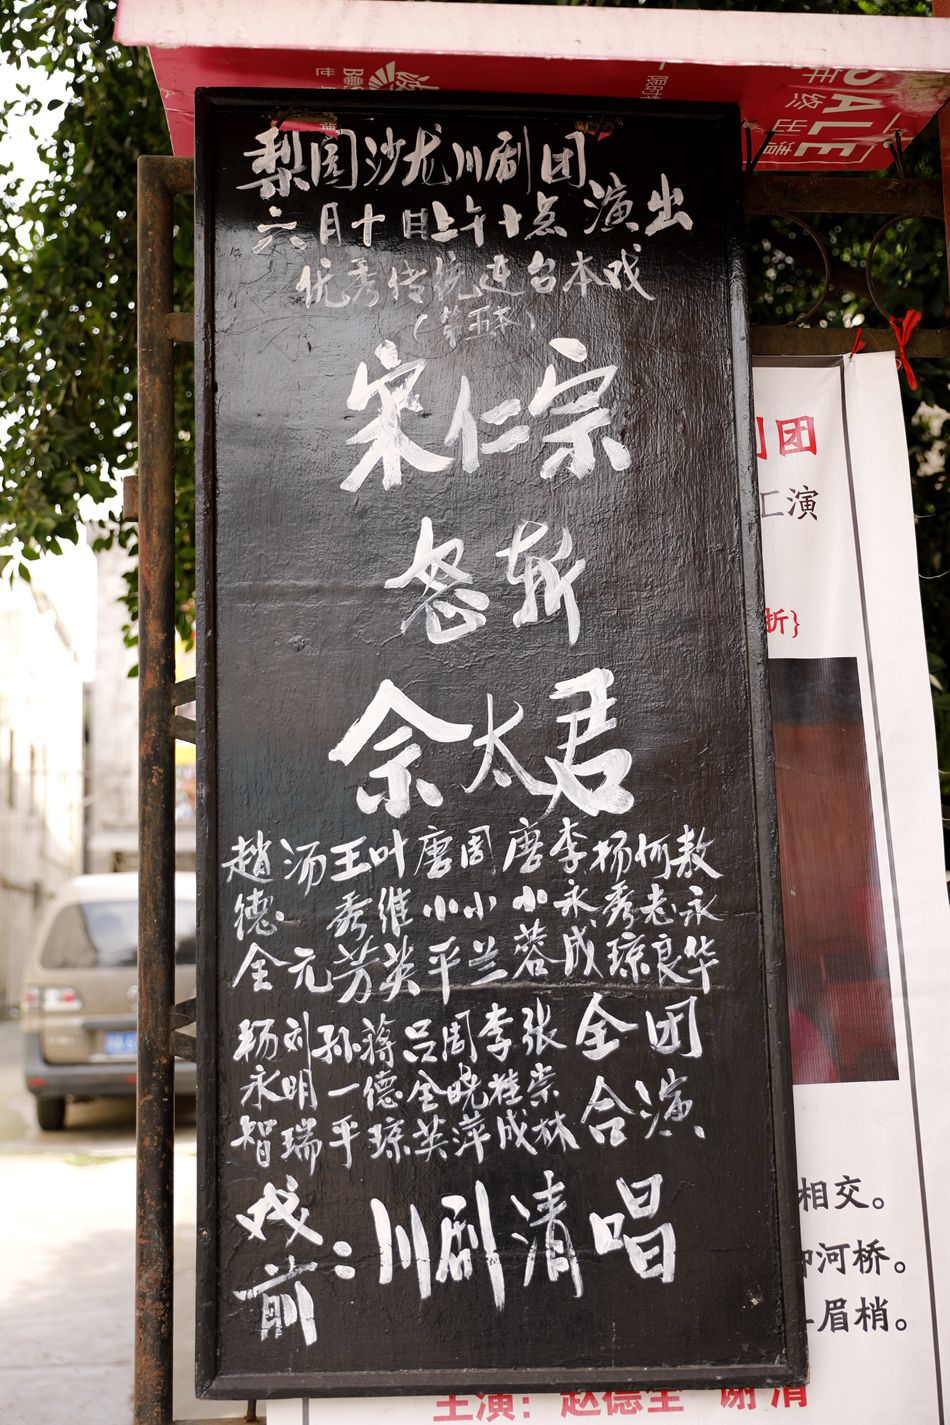 SALE
梨园沙龙川剧团
六月十日上午十点演出
优秀传统连台本戏
（第五本）
宋仁宗
怒斩
佘太君
赵德全 汤元 王秀芳 叶维英 唐小平 周小兰 唐小蓉 李永成 杨秀琼 何志良 敖永华
杨永智 刘明瑞 孙一平 蒋德琼 吕全英 周晓萍 李桂成 张崇林 全团合演
戏前：川剧清唱
团
演
折}
相交。
河桥。
眉梢。
主演：赵德全 谢清